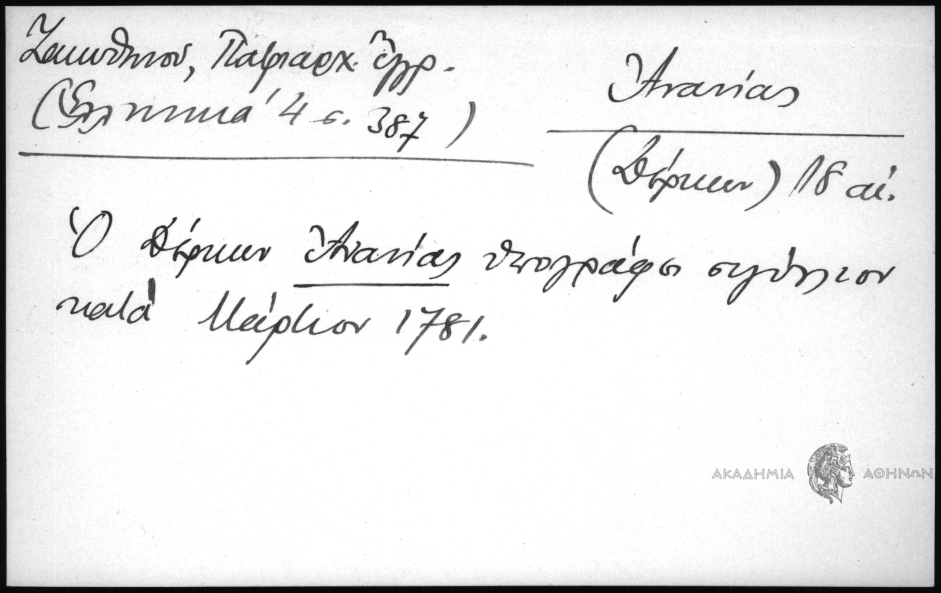 Ζακυθηνού, Πατριαρχ. Ἔγγρ.
(Ἑλληνικά 4 σ. 387)
Ἀνανίας
(Δέρκων) 18 αἰ.
Ὁ Δέρκων Ἀνανίας ὑπογράφει σιγίλλιον
κατά Μάρτιον 1781.
ΑΚΑΔΗΜΙΑ ΑΘΗΝΩΝ